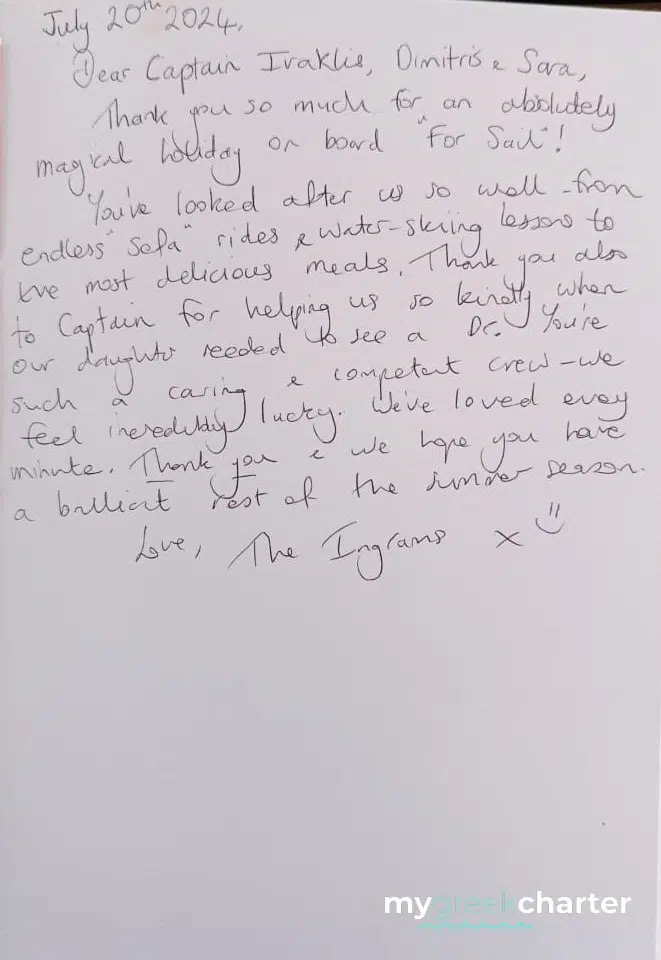 July 20th 2024.
Dear Captain Iraklis, Dimitris & Sara,
Thank you so much for an absolutely
magical holiday on board "For Sail"!
You've looked after us so well - from
endless "sofa" rides & water-skiing lessons to
the most delicious meals. Thank you also
to Captain for helping us so kindly when
our daughter needed to see a Dr. You're
such a caring & competent crew - we
feel incredibly lucky. We've loved every
minute. Thank you & we hope you have
a brilliant rest of the summer season.
Love, The Ingrams x
mygreekcharter